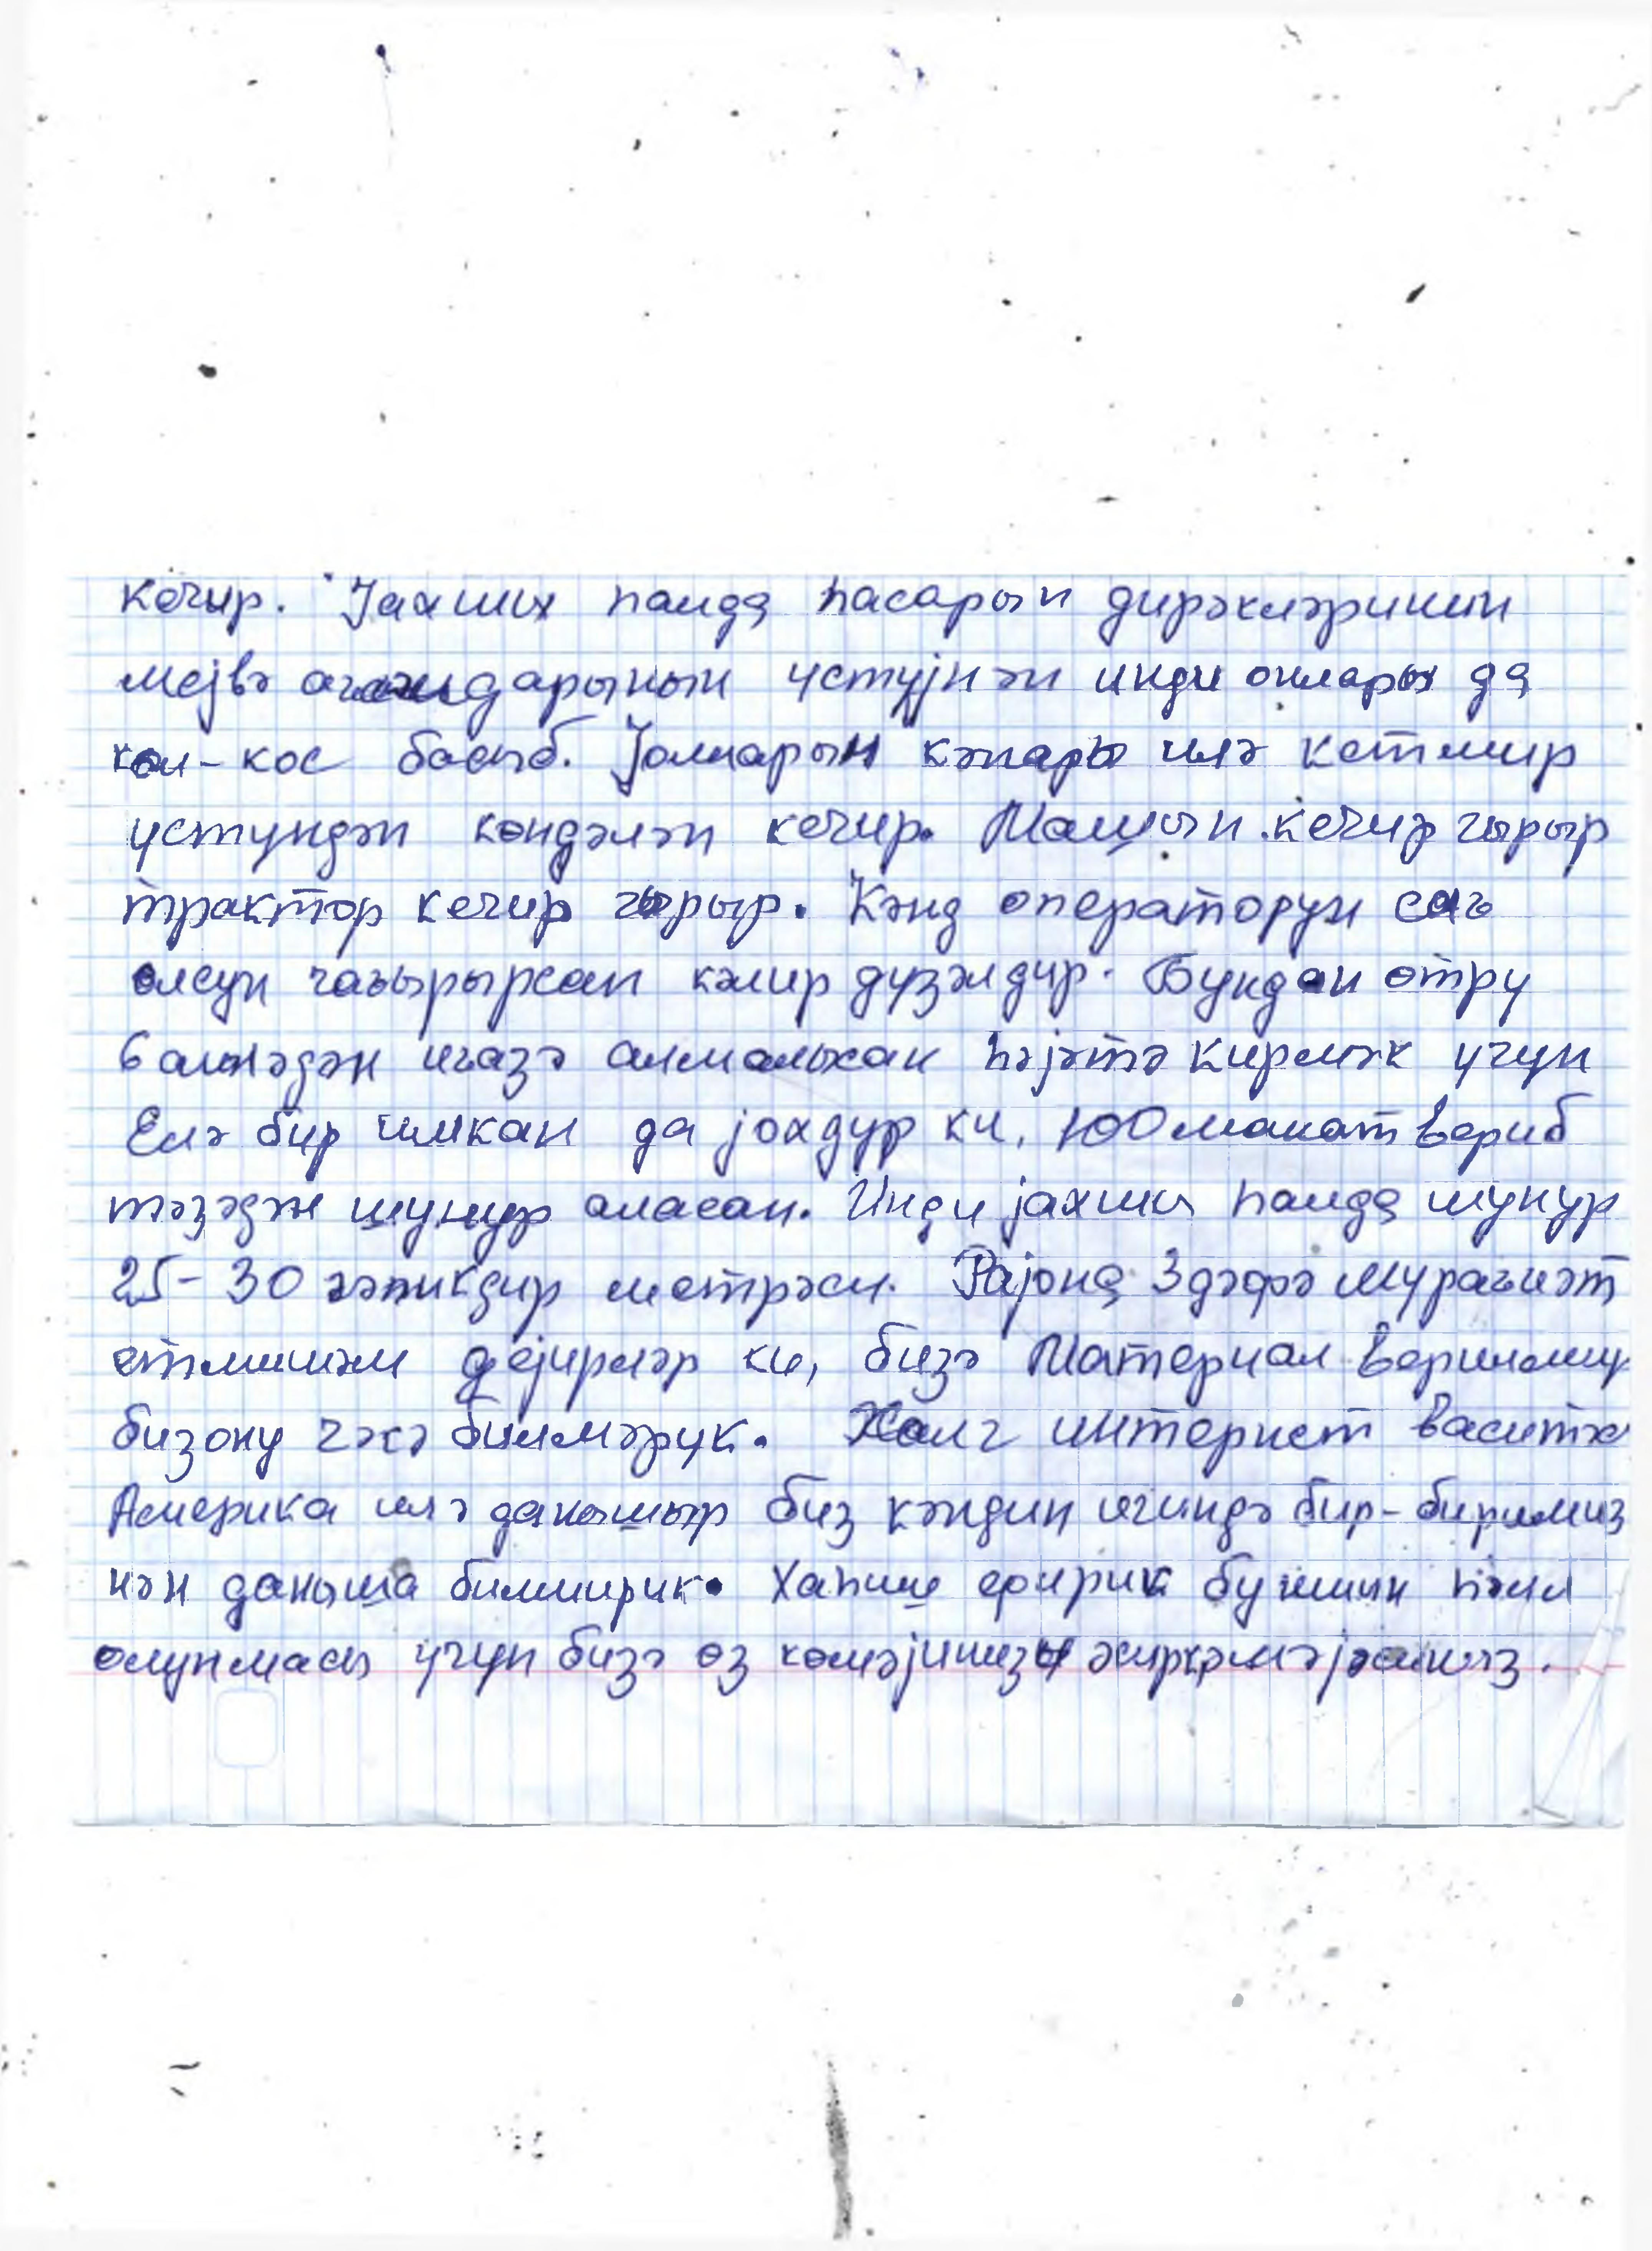 кечир. Јахшы һалда һасарын дирәкләринин
мејвә ағаждарынын үстүјнән инди онлары да
кол-кос басыб. Јолларын кәнары илә кетмир
үстүндән көндәлән кечир. Машын кечир гырыр
трактор кечир гырыр. Кәнд оператορун сағ
олсун чағырырсан кәлир дүзәлдир. Бундан өтрү
6 аиләдән иҹазә алмалысан һәјәтә кирмәк үчүн
Елә бир имкан да јохдур ки, 100 манат вериб
тәзәдән шунур аласан. Инди јахшы һалда шунур
25-30 гәпикдир метрәси. Рајона 3 дәфә мураҹиәт
етмишәм дејирләр ки, бизә Материал верилмир
биз ону чәкә билмәрик. Халг интернет васитә
Америка илә данышыр биз кәндин ичиндә бир-биримиз
нән даныша билмирик. Хаһиш едирик бу ишин һәлл
олунмасы үчүн бизә өз көмәјинизи әсиркәмәјәсиниз.